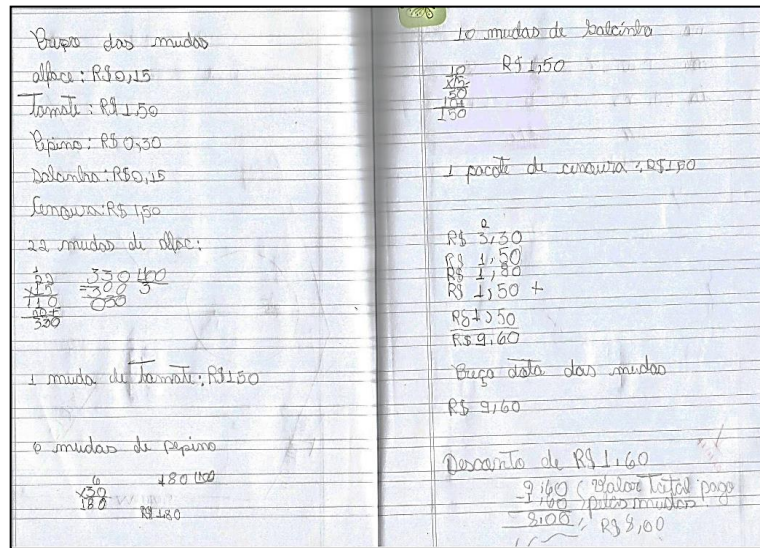 Preço das mudas
alface: R$0,15
Tomate: R$1,50
Pepino: R$ 0,30
Salcinha: R$0,15
Cenoura: R$ 1,50
22 mudas de alfac:
1
22 330 100
x15 =300 3
110 030
22+
330
1 muda de tomate: R$1,50
6 mudas de pepino
6 180 100
x30
180 R$ 1,80
10 mudas de salcinha
10 R$ 1,50
x15
50
10+
150
1 pacote de cenoura: R$1,50
2
R$ 3,30
R$ 1,50
R$ 1,80
R$ 1,50 +
R$ 1,50
R$ 9,60
das mudas
R$ 9,60
Desconto de R$ 1,60
9,60 Valor total pago
-1,60 pelas mudas
8,00 R$ 8,00